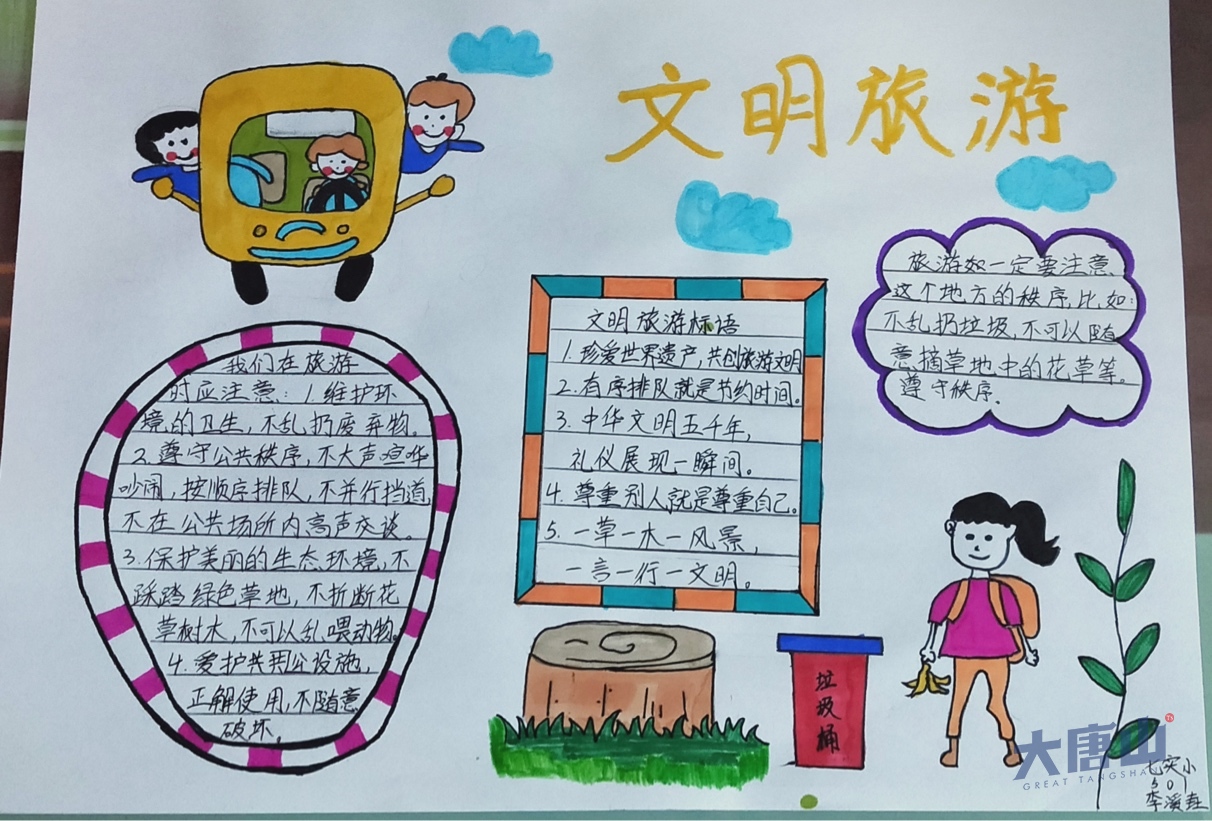 文明旅游
旅游如一定要注意
这个地方的秩序,比如:
不乱扔垃圾,不可以随
意摘草地中的花草等。
遵守秩序.
文明旅游标语
1.珍爱世界遗产,共创旅游文明
2.有序排队就是节约时间。
3.中华文明五千年,
礼仪展现一瞬间。
4.尊重别人就是尊重自己。
5.一草一木一风景,
一言一行一文明。
我们在旅游
时应注意:1.维护环
境的卫生,不乱扔废弃物。
2.遵守公共秩序,不大声喧哗
吵闹,按顺序排队,不并行挡道,
不在公共场所内高声交谈。
3.保护美丽的生态环境,不
踩踏绿色草地,不折断花
草树木,不可以乱喂动物。
4.爱护共用公设施,
正解使用,不随意
破坏。
垃
圾
桶
大唐山
GREAT TANGSHAN
七实小
301
李溪